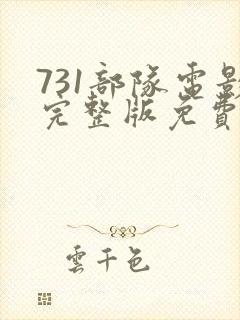 731部隊電影
完整版免費
雲千色